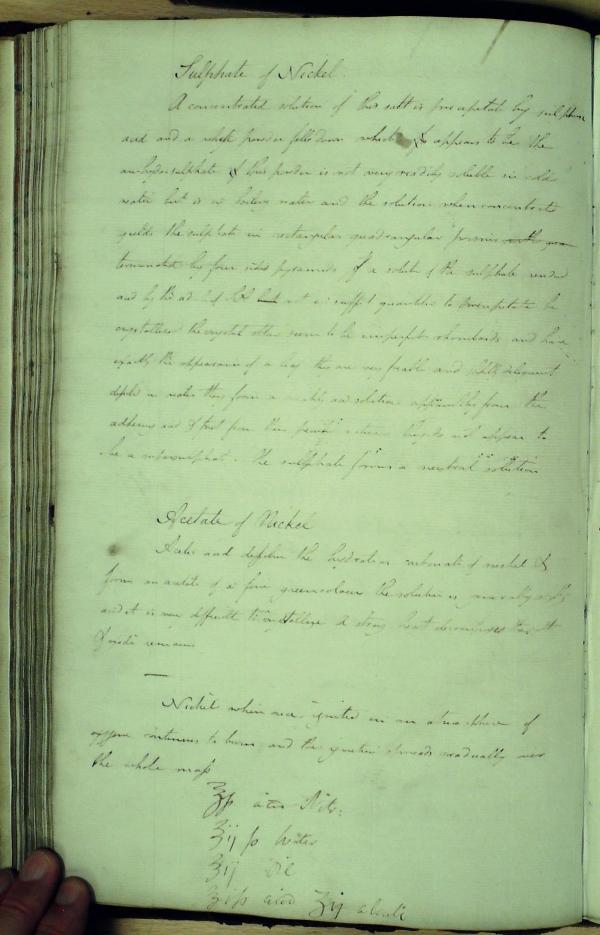 Sulphate of Nickel
A concentrated solution of this salt is precipitated by sulphuric
acid and a white powder falls down which appears to be the
anhydrosulphate of this powder is not very readily soluble in cold
water but is in boiling water and the solution when concentrated
yields the sulphate in rectangular quadrangular prisms
terminated by four sided pyramids If a solution of the sulphate rendered
acid by the ad but not in suff quantities to precipitate be
crystallised the crystal often seem to be imperfect rhomboids and have
exactly the appearance of a they are very friable and deliquescent
dissolved in water they form a acid solution apparently from the
adhering acid & not from their nature they do not appear to
be a supersulphate. The sulphate forms a neutral solution
Acetate of Nickel
Acetic acid dissolves the hydrate or carbonate of nickel &
forms an acetate of a fine green colour the solution is generally
and it is very difficult to crystallize A strong heat decomposes the salt
Oxide remains
Nickel when once ignited in an atmosphere of
oxygen continues to burn and the ignition spreads gradually over
the whole mass
ʒß Nit:
ʒij ß water
ʒij Oil
acid ʒij